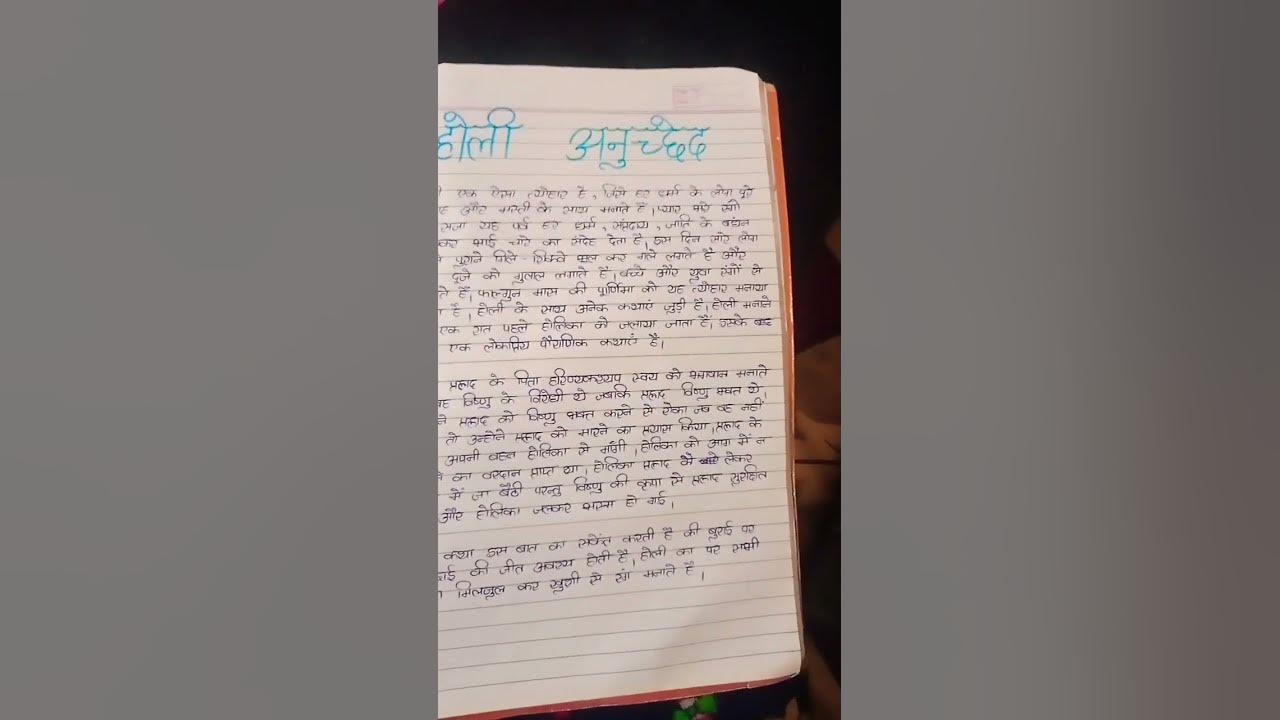 होली अनुच्छेद
एक ऐसा त्योहार है, जिसे हर धर्म के लोग पूरे
और मस्ती के साथ मनाते हैं। प्यार भरे रंगों
सजा यह पर्व हर धर्म, संप्रदाय, जाति के बंधन
कर भाई चारे का संदेह देता है। इस दिन सारे लोग
पुराने गिले-शिकवे भूल कर गले लगाते हैं और
दूजे को गुलाल लगाते हैं। बच्चे और युवा रंगों से
ते हैं। फाल्गुन मास की पूर्णिमा को यह त्योहार मनाया
है। होली के साथ अनेक कथाएं जुड़ी हैं। होली मनाने
एक रात पहले होलिका को जलाया जाता है। उसके बाद
एक लोकप्रिय पौराणिक कथाएं है।
प्रह्लाद के पिता हरिण्यकश्यप स्वयं को भगवान मनाते
वह विष्णु के विरोधी थे जबकि प्रह्लाद विष्णु भक्त थे।
ने प्रह्लाद को विष्णु भक्त करने से रोका जब वह नहीं
तो उन्होंने प्रह्लाद को मारने का प्रयास किया। प्रह्लाद के
अपनी बहन होलिका से माँगी। होलिका को आग में न
का वरदान प्राप्त था। होलिका प्रह्लाद को लेकर
में जा बैठी परन्तु विष्णु की कृपा से प्रह्लाद सुरक्षित
और होलिका जलकर भस्म हो गई।
कथा इस बात का संकेत करती है की बुराई पर
की जीत अवश्य होती है। होली का पर सभी
मिलजुल कर खुशी से मनाते है।